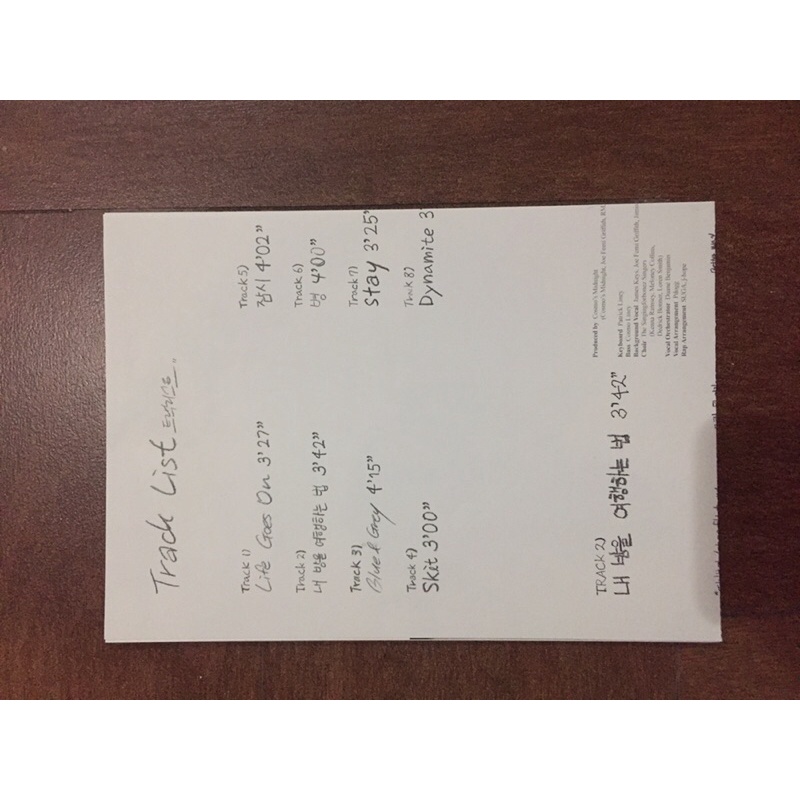 Track List 트랙리스트.
Track 1)
Life Goes On 3'27"
Track 2)
내 방을 여행하는 법 3'42"
Track 3)
Blue & Grey 4'15"
Track 4)
Skit 3'00"
Track 5)
잠시 4'02"
Track 6)
병 4'00"
Track 7)
stay 3'25"
Track 8)
Dynamite 3'
TRACK 2)
내 방을 여행하는 법 3'42"
Produced by Cosmo's Midnight
(Cosmo's Midnight, Joe Femi Griffith, RM,
Keyboard Patrick Liney
Bass Cosmo Liney
Background Vocal James Keys, Joe Femi Griffith, Jimin
Choir The
Vocal Orchestrator Duane Benjamin
Vocal Arrangement Pdogg
Rap Arrangement SUGA, j-hope